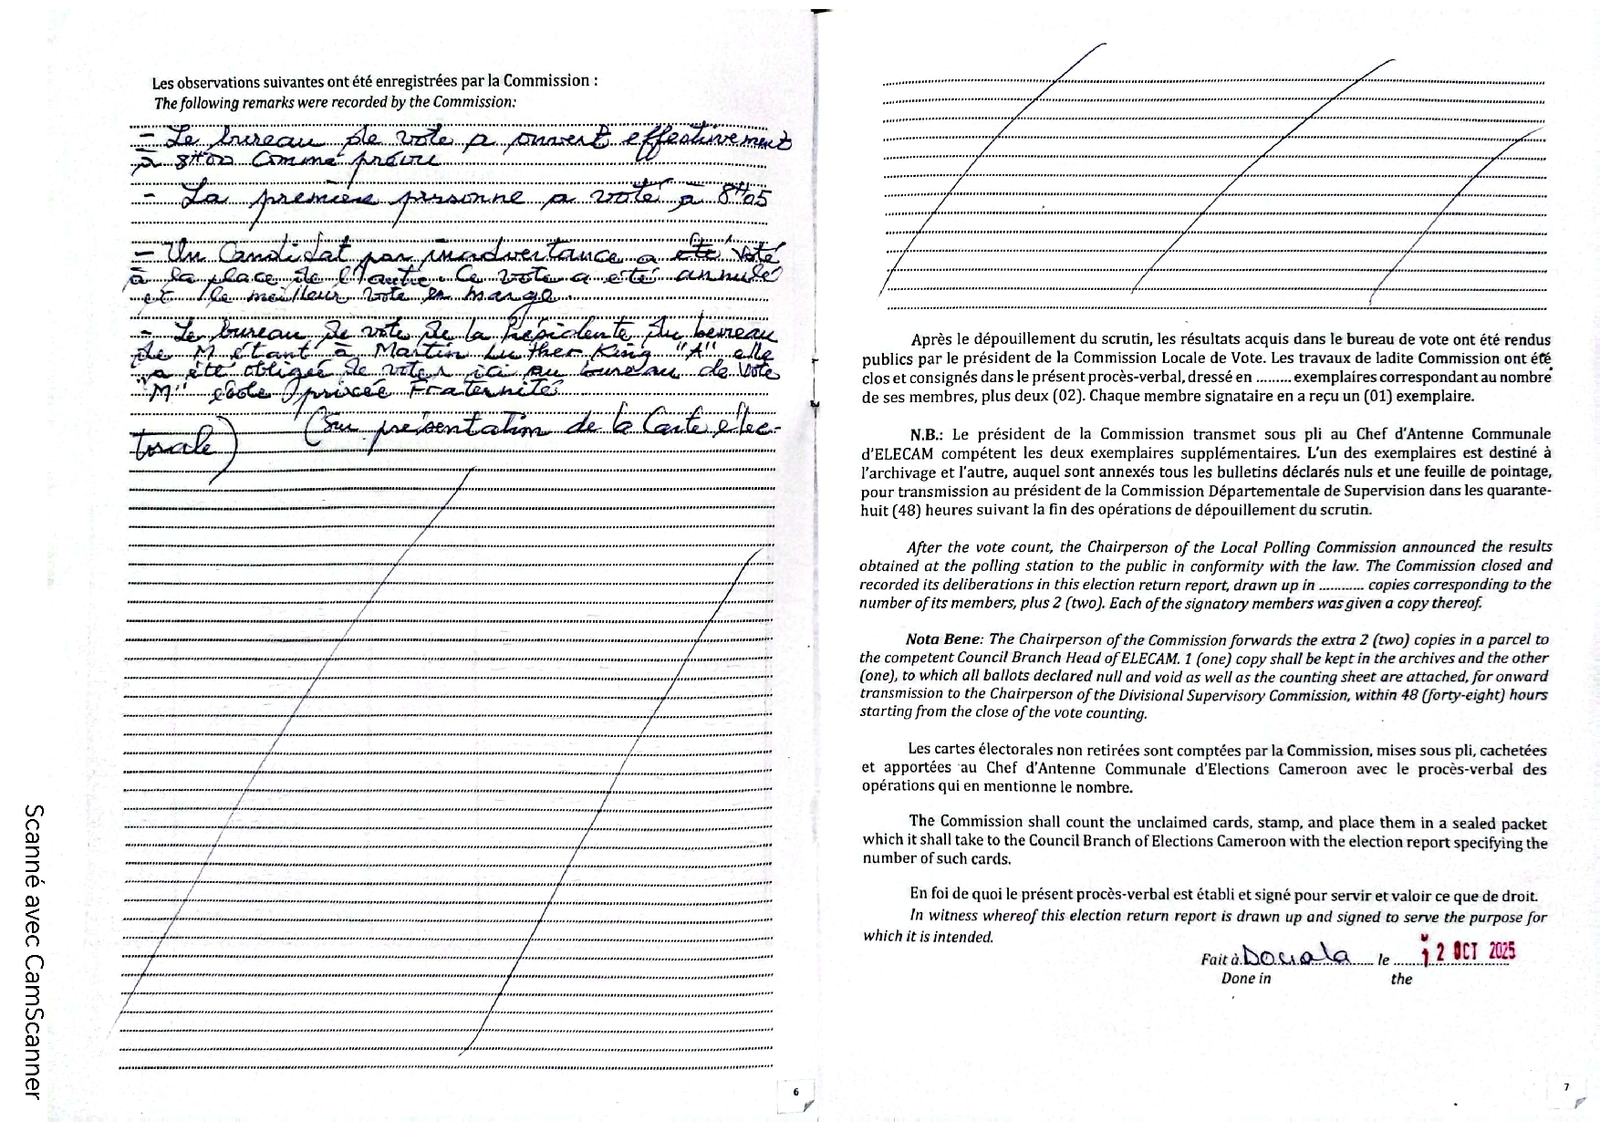 Les observations suivantes ont été enregistrées par la Commission :
The following remarks were recorded by the Commission:
- Le bureau de vote a ouvert effectivement
à 8H00 comme prévu
- La première personne a voté à 8H05
- Un Candidat par inadvertance a été voté
à la place de l'autre. Ce vote a été annulé
et le meilleur vote en marge.
- Le bureau de vote de la Présidente du bureau
de M étant à Martin Luther King "A" elle
a été obligée de voter ici au bureau de vote
"M" école privée Fraternité
(Sur présentation de la Carte élec-
torale)
6
Après le dépouillement du scrutin, les résultats acquis dans le bureau de vote ont été rendus
publics par le président de la Commission Locale de Vote. Les travaux de ladite Commission ont été
clos et consignés dans le présent procès-verbal, dressé en ......... exemplaires correspondant au nombre
de ses membres, plus deux (02). Chaque membre signataire en a reçu un (01) exemplaire.
N.B.: Le président de la Commission transmet sous pli au Chef d'Antenne Communale
d'ELECAM compétent les deux exemplaires supplémentaires. L'un des exemplaires est destiné à
l'archivage et l'autre, auquel sont annexés tous les bulletins déclarés nuls et une feuille de pointage,
pour transmission au président de la Commission Départementale de Supervision dans les quarante-
huit (48) heures suivant la fin des opérations de dépouillement du scrutin.
After the vote count, the Chairperson of the Local Polling Commission announced the results
obtained at the polling station to the public in conformity with the law. The Commission closed and
recorded its deliberations in this election return report, drawn up in ........... copies corresponding to the
number of its members, plus 2 (two). Each of the signatory members was given a copy thereof.
Nota Bene: The Chairperson of the Commission forwards the extra 2 (two) copies in a parcel to
the competent Council Branch Head of ELECAM. 1 (one) copy shall be kept in the archives and the other
(one), to which all ballots declared null and void as well as the counting sheet are attached, for onward
transmission to the Chairperson of the Divisional Supervisory Commission, within 48 (forty-eight) hours
starting from the close of the vote counting.
Les cartes électorales non retirées sont comptées par la Commission, mises sous pli, cachetées
et apportées au Chef d'Antenne Communale d'Elections Cameroon avec le procès-verbal des
opérations qui en mentionne le nombre.
The Commission shall count the unclaimed cards, stamp, and place them in a sealed packet
which it shall take to the Council Branch of Elections Cameroon with the election report specifying the
number of such cards.
En foi de quoi le présent procès-verbal est établi et signé pour servir et valoir ce que de droit.
In witness whereof this election return report is drawn up and signed to serve the purpose for
which it is intended.
Fait à Douala le 12 OCT 2025
Done in the
7
Scanné avec CamScanner